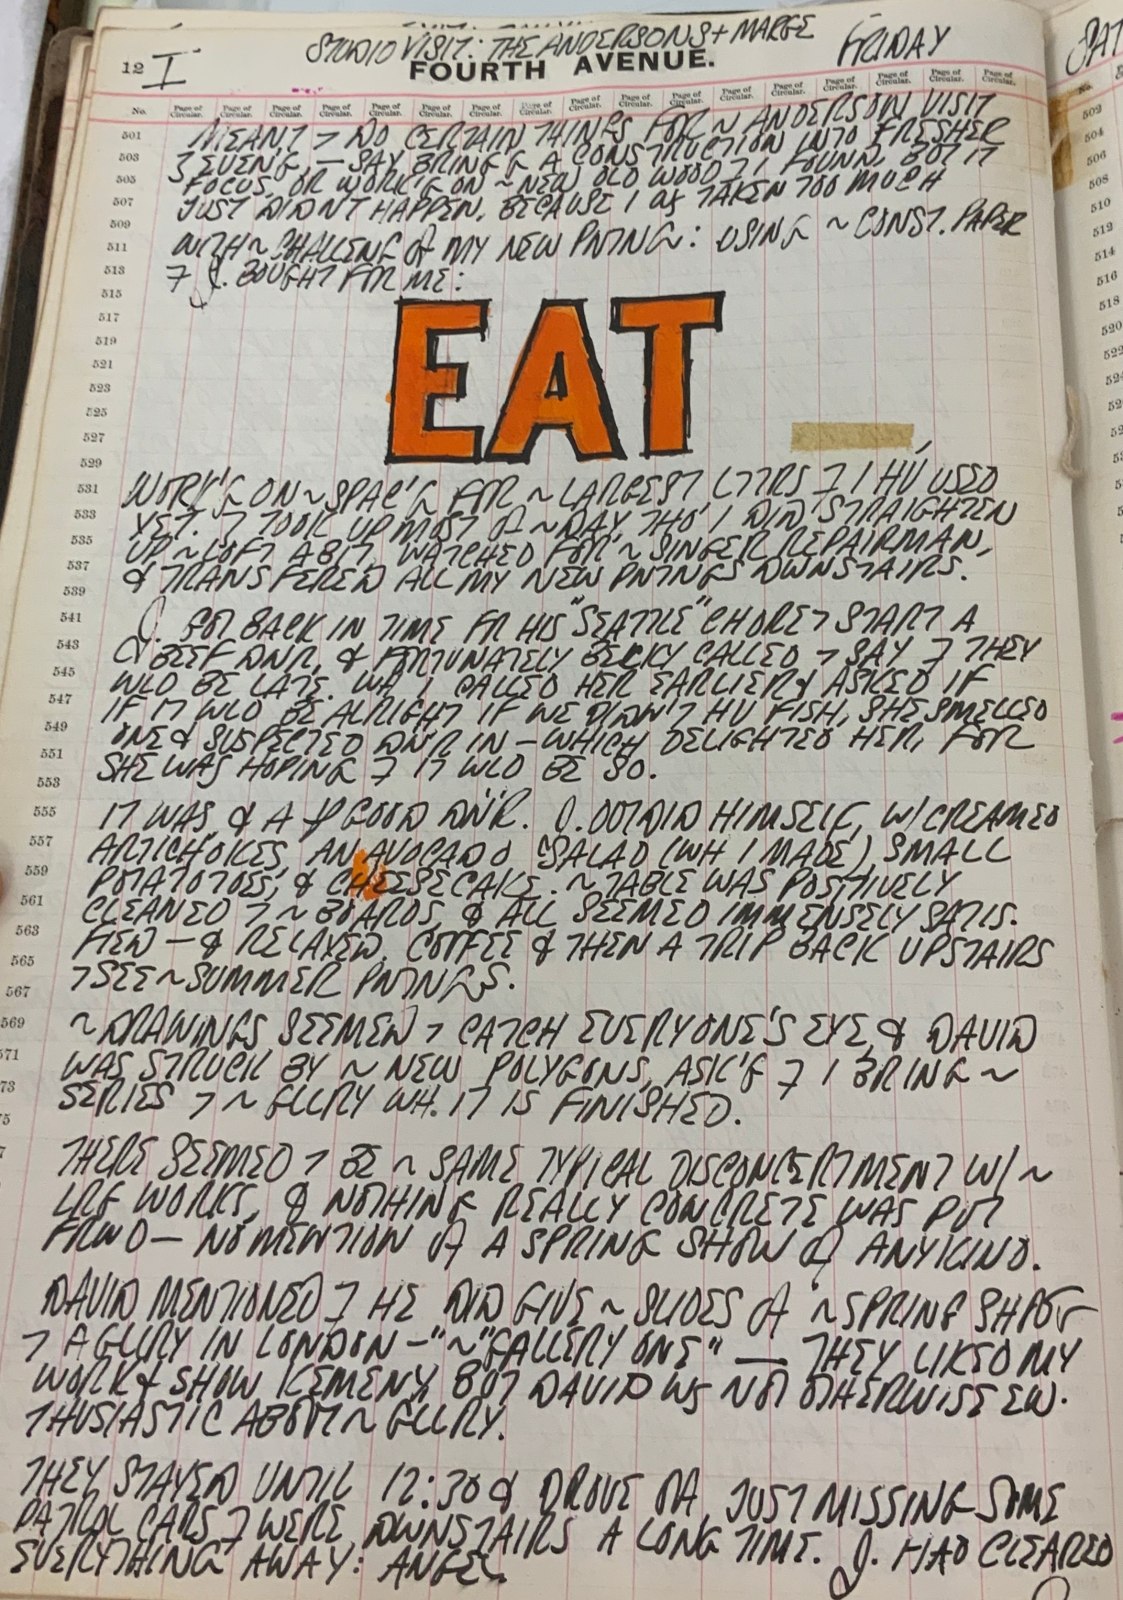 STUDIO VISIT: THE ANDERSONS + MARGE FRIDAY
12 I FOURTH AVENUE.
No. Page of Circular. Page of Circular. Page of Circular. Page of Circular. Page of Circular. Page of Circular. Page of Circular. Page of Circular. Page of Circular. Page of Circular. Page of Circular. Page of Circular. Page of Circular. Page of Circular. Page of Circular. Page of Circular. Page of Circular.
MEANT 7 DO CERTAIN THINGS FOR ~ ANDERSON VISIT
EVEN'G, — SAY BRING'G A CONSTRUCTION INTO FRESHER
FOCUS, OR WORK'G ON ~ NEW OLD WOOD 7 I FOUND, BUT IT
JUST DIDN'T HAPPEN, BECAUSE I WS TAKEN TOO MUCH
WITH ~ CHALLENG OF MY NEW PNTNG: USING ~ CONST. PAPER
7 J. BOUGHT FOR ME:
EAT
WORK'G ON ~ SPAC'G FOR ~ LARGEST LTTRS 7 I HV USED
YET. 7 TOOK UP MOST OF ~ DAY THO' I DID STRAIGHTEN
UP ~ LOFT A BIT, WATCHED FOR ~ SINGER REPAIRMAN,
& TRANSFERED ALL MY NEW PNTNGS DWNSTAIRS.
J. GOT BACK IN TIME FR HIS "SEATTLE" CHORE 7 START A
BEEF DNR, & FORTUNATELY BECKY CALLED 7 SAY 7 THEY
WLD BE LATE. WH I CALLED HER EARLIER & ASKED IF
IF IT WLD BE ALRIGHT IF WE DIDN'T HV FISH, SHE SMELLED
ONE & SUSPECTED DNR IN – WHICH DELIGHTED HER, FOR
SHE WAS HOPING 7 IT WLD BE SO.
IT WAS & A GOOD DNR. J. OUTDID HIMSELF, W/ CREAMED
ARTICHOKES, AN AVOCADO SALAD (WH I MADE), SMALL
POTATOTOES, & CHEESECAKE. ~ TABLE WAS POSITIVELY
CLEANED 7 ~ BOARDS, & ALL SEEMED IMMENSELY SATIS-
FIED — & RELAXED. COFFEE & THEN A TRIP BACK UPSTAIRS
7 SEE ~ SUMMER PNTNGS.
~ DRAWINGS SEEMED 7 CATCH EVERYONE'S EYE, & DAVID
WAS STRUCK BY ~ NEW POLYGONS, ASK'G 7 I BRING ~
SERIES 7 ~ GLLRY WH. IT IS FINISHED.
THERE SEEMED 7 BE ~ SAME TYPICAL DISCONCERTMENT W/ ~
LRG WORKS, & NOTHING REALLY CONCRETE WAS PUT
FRWD — NO MENTION OF A SPRING SHOW OF ANY KIND.
DAVID MENTIONED 7 HE DID GIVE ~ SLIDES OF ~ SPRING
7 A GLLRY IN LONDON – "~" GALLERY ONE" — THEY LIKED MY
WORK & SHOW KEMENY, BUT DAVID WS NOT OTHERWISE EN-
THUSIASTIC ABOUT ~ GLLRY.
THEY STAYED UNTIL 12:30 & DROVE OFF JUST MISSING SOME
PATROL CARS 7 WERE DWNSTAIRS A LONG TIME. J. HAD CLEARED
EVERYTHING AWAY: ANGEL.
501
503
505
507
509
511
513
515
517
519
521
523
525
527
529
531
533
535
537
539
541
543
545
547
549
551
553
555
557
559
561
563
565
567
569
571
73
75
SAT
No.
502
504
506
508
510
512
514
516
518
520
522